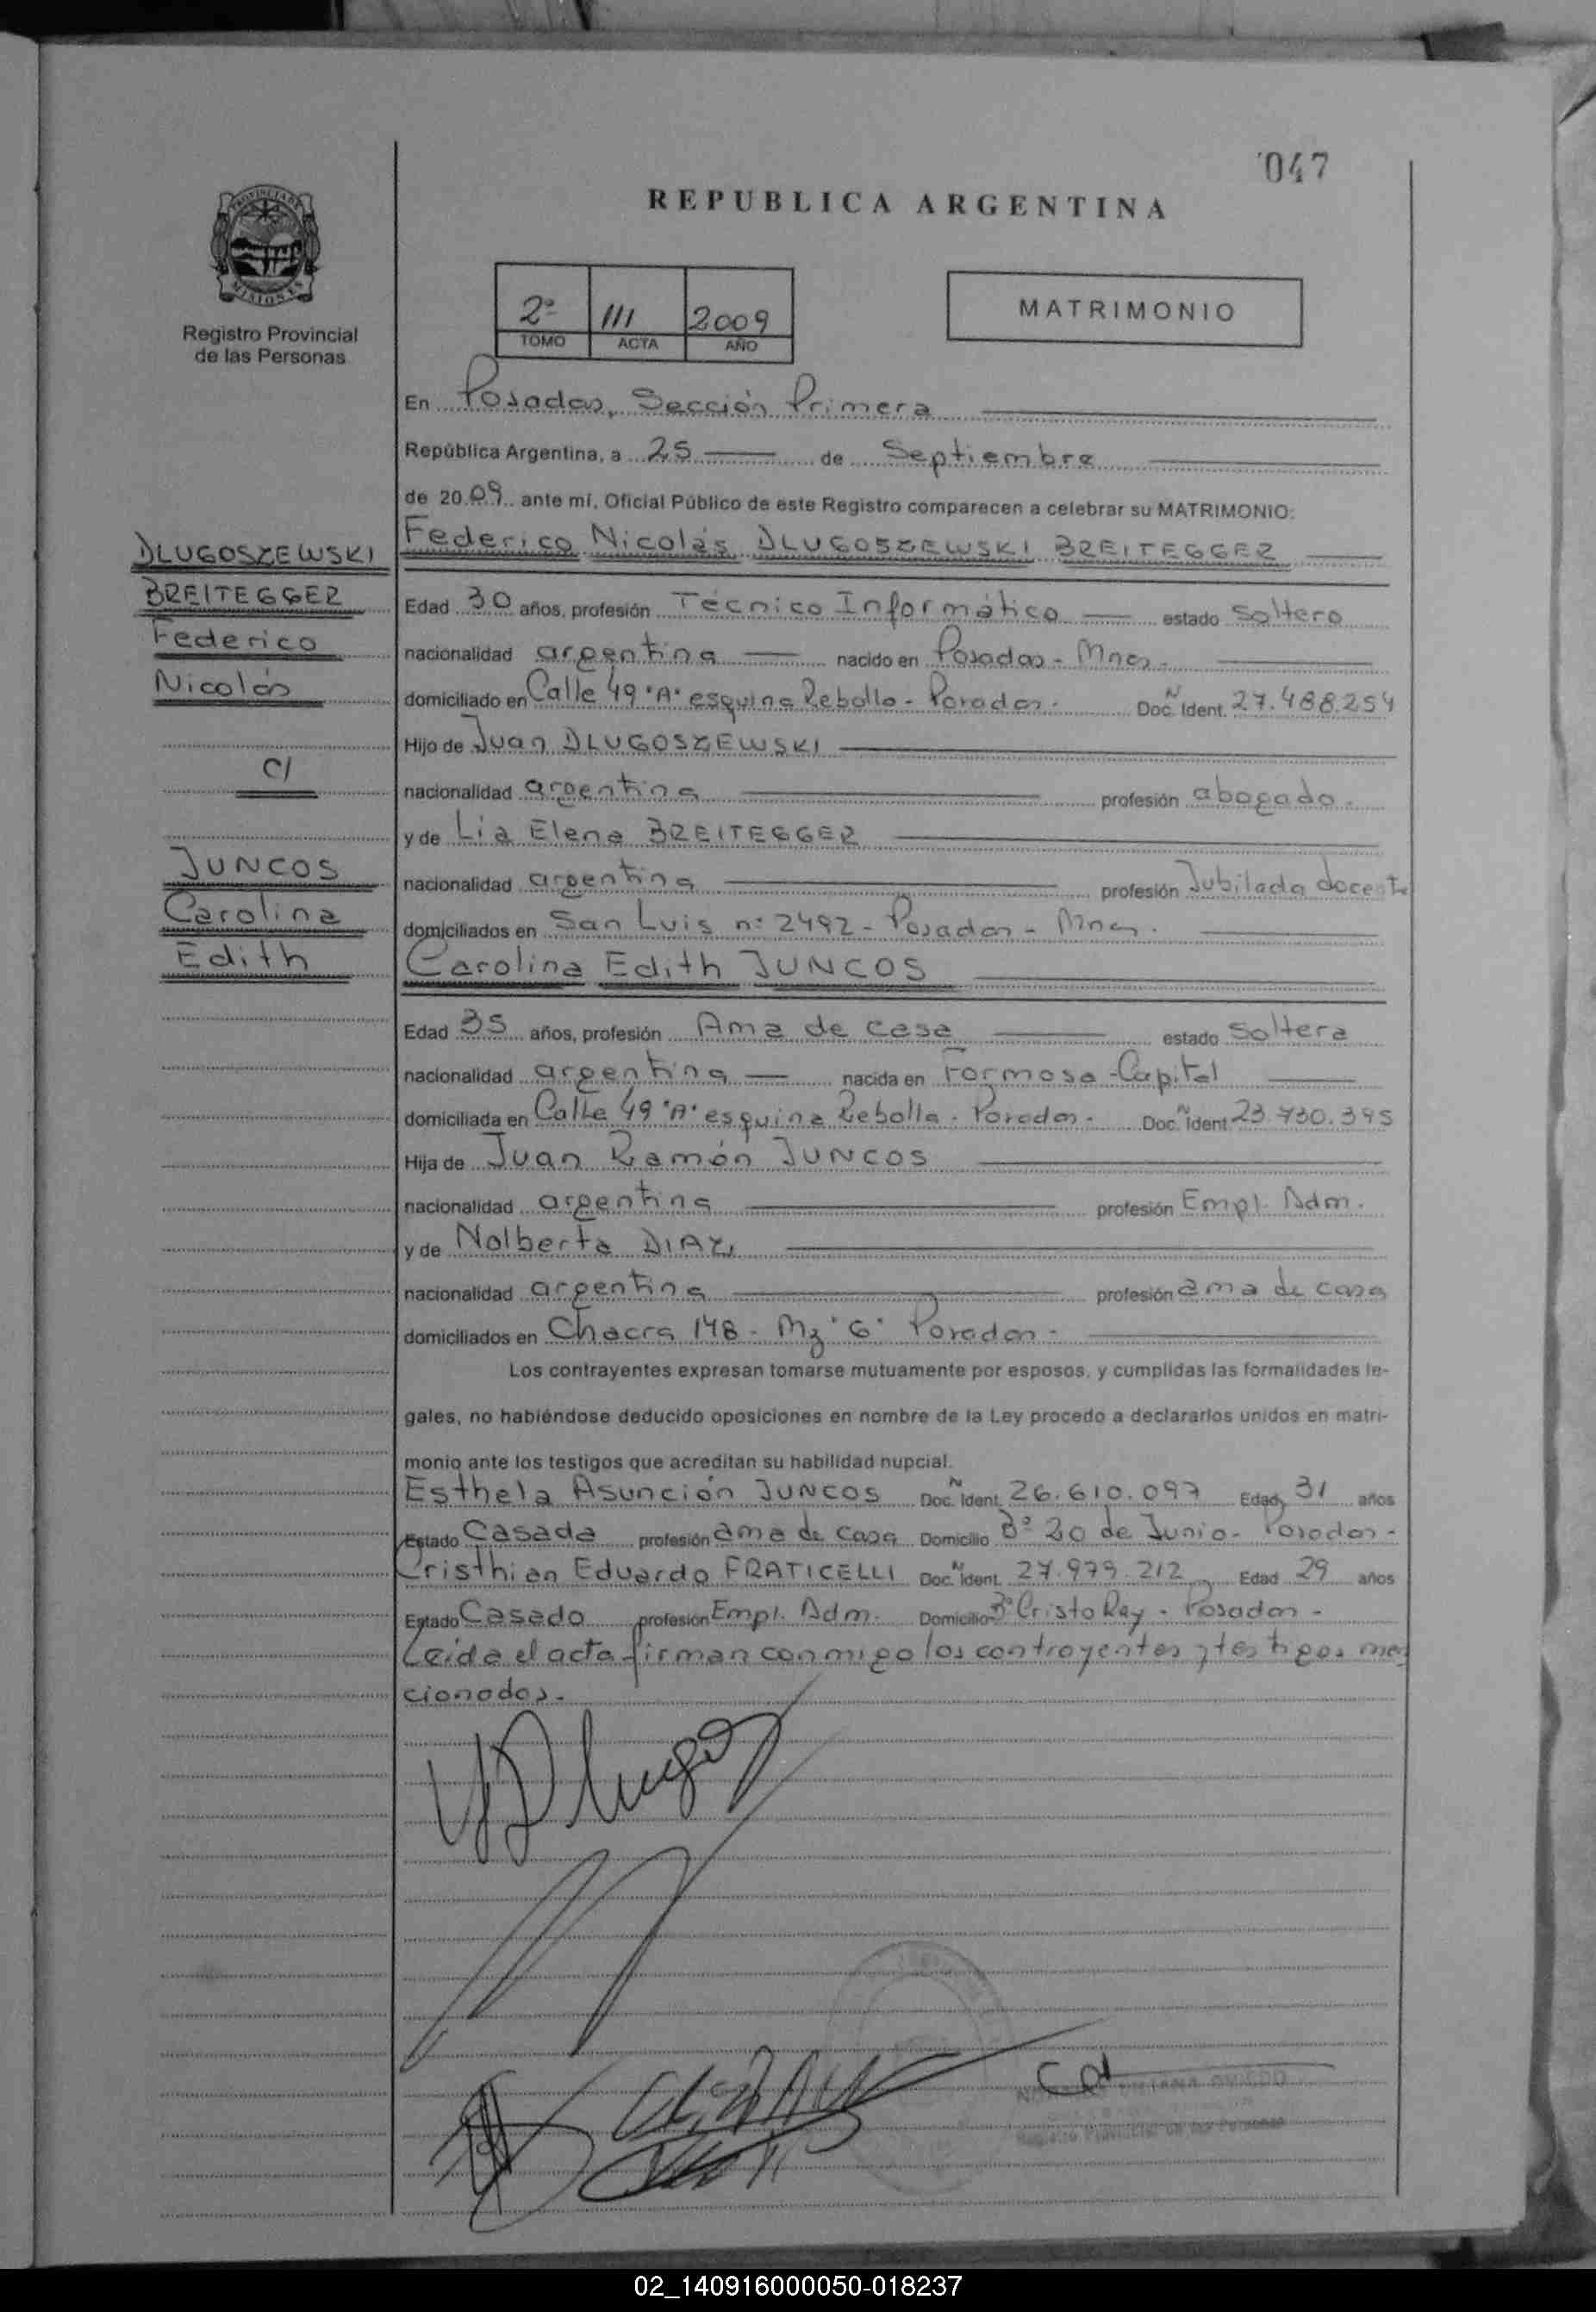 047
REPUBLICA ARGENTINA
PROVINCIA DE MISIONES
Registro Provincial
de las Personas
2º 111 2009
TOMO ACTA AÑO
MATRIMONIO
En Posadas, Sección Primera
República Argentina, a 25 de Septiembre
de 2009 ante mí, Oficial Público de este Registro comparecen a celebrar su MATRIMONIO:
DLUGOSZEWSKI
BREITEGGER
Federico
Nicolás
C/
JUNCOS
Carolina
Edith
Federico Nicolás DLUGOSZEWSKI BREITEGGER
Edad 30 años, profesión Técnico Informático estado Soltero
nacionalidad argentina nacido en Posadas - Mnes.
domiciliado en Calle 49 "A" esquina Rebollo - Posadas - Doc. Ident. N 27.488.254
Hijo de Juan DLUGOSZEWSKI
nacionalidad argentina profesión abogado.
y de Lia Elena BREITEGGER
nacionalidad argentina profesión Jubilada docente
domiciliados en San Luis nº 2492 - Posadas - Mnes.
Carolina Edith JUNCOS
Edad 35 años, profesión Ama de casa estado Soltera
nacionalidad argentina nacida en Formosa - Capital
domiciliada en Calle 49 "A" esquina Rebollo - Posadas - Doc. Ident N 23.730.395
Hija de Juan Ramón JUNCOS
nacionalidad argentina profesión Empl. Adm.
y de Nolberta DIAZ
nacionalidad argentina profesión ama de casa
domiciliados en Chacra 148 - Mz "G" Posadas -
Los contrayentes expresan tomarse mutuamente por esposos, y cumplidas las formalidades le-
gales, no habiéndose deducido oposiciones en nombre de la Ley procedo a declararlos unidos en matri-
monio ante los testigos que acreditan su habilidad nupcial.
Esthela Asunción JUNCOS Doc. Ident. N 26.610.097 Edad 31 años
Estado Casada profesión ama de casa Domicilio Bº 20 de Junio - Posadas -
Cristhian Eduardo FRATICELLI Doc. Ident. N 27.979.212 Edad 29 años
Estado Casado profesión Empl. Adm. Domicilio Bº Cristo Rey - Posadas -
Leída el acta firman conmigo los contrayentes y testigos men
cionados.-
02_140916000050-018237